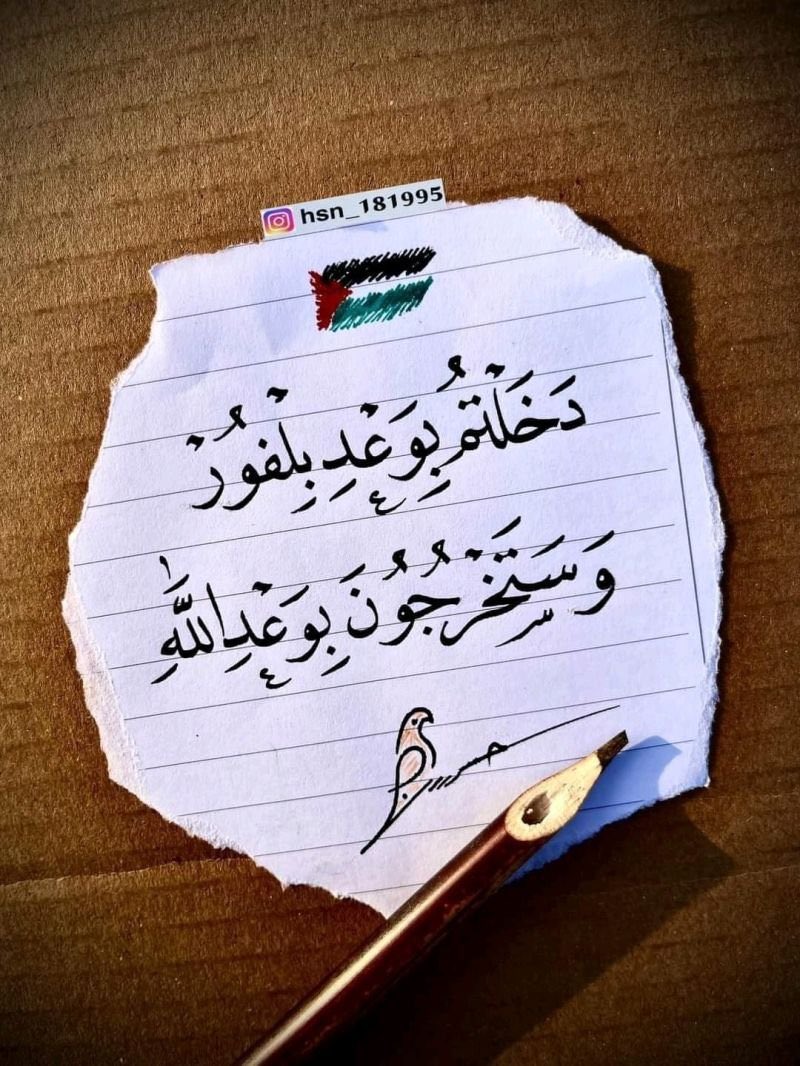 hsn_181995
دَخَلْتمُ بِوَعْدِ بِلْفُورْ
وَسَتَخْرُجُونَ بِوَعْدِ اللَّهِ